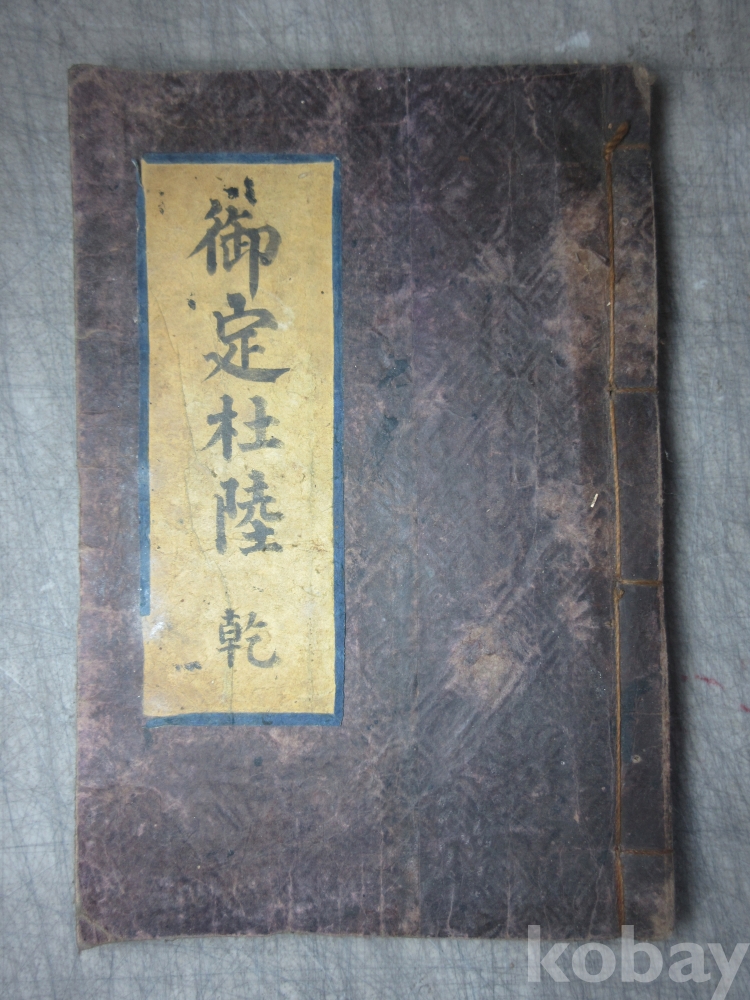 御定杜陸 乾
kobay